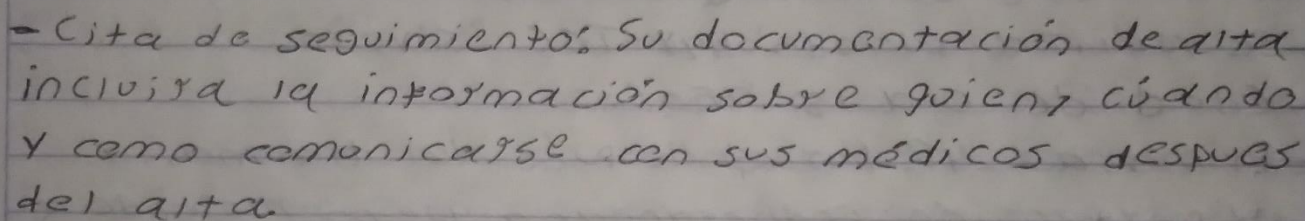 - Cita de seguimiento: Su documentación de alta
incluira la información sobre quien, cúando
y como comunicarse con sus médicos despues
del alta